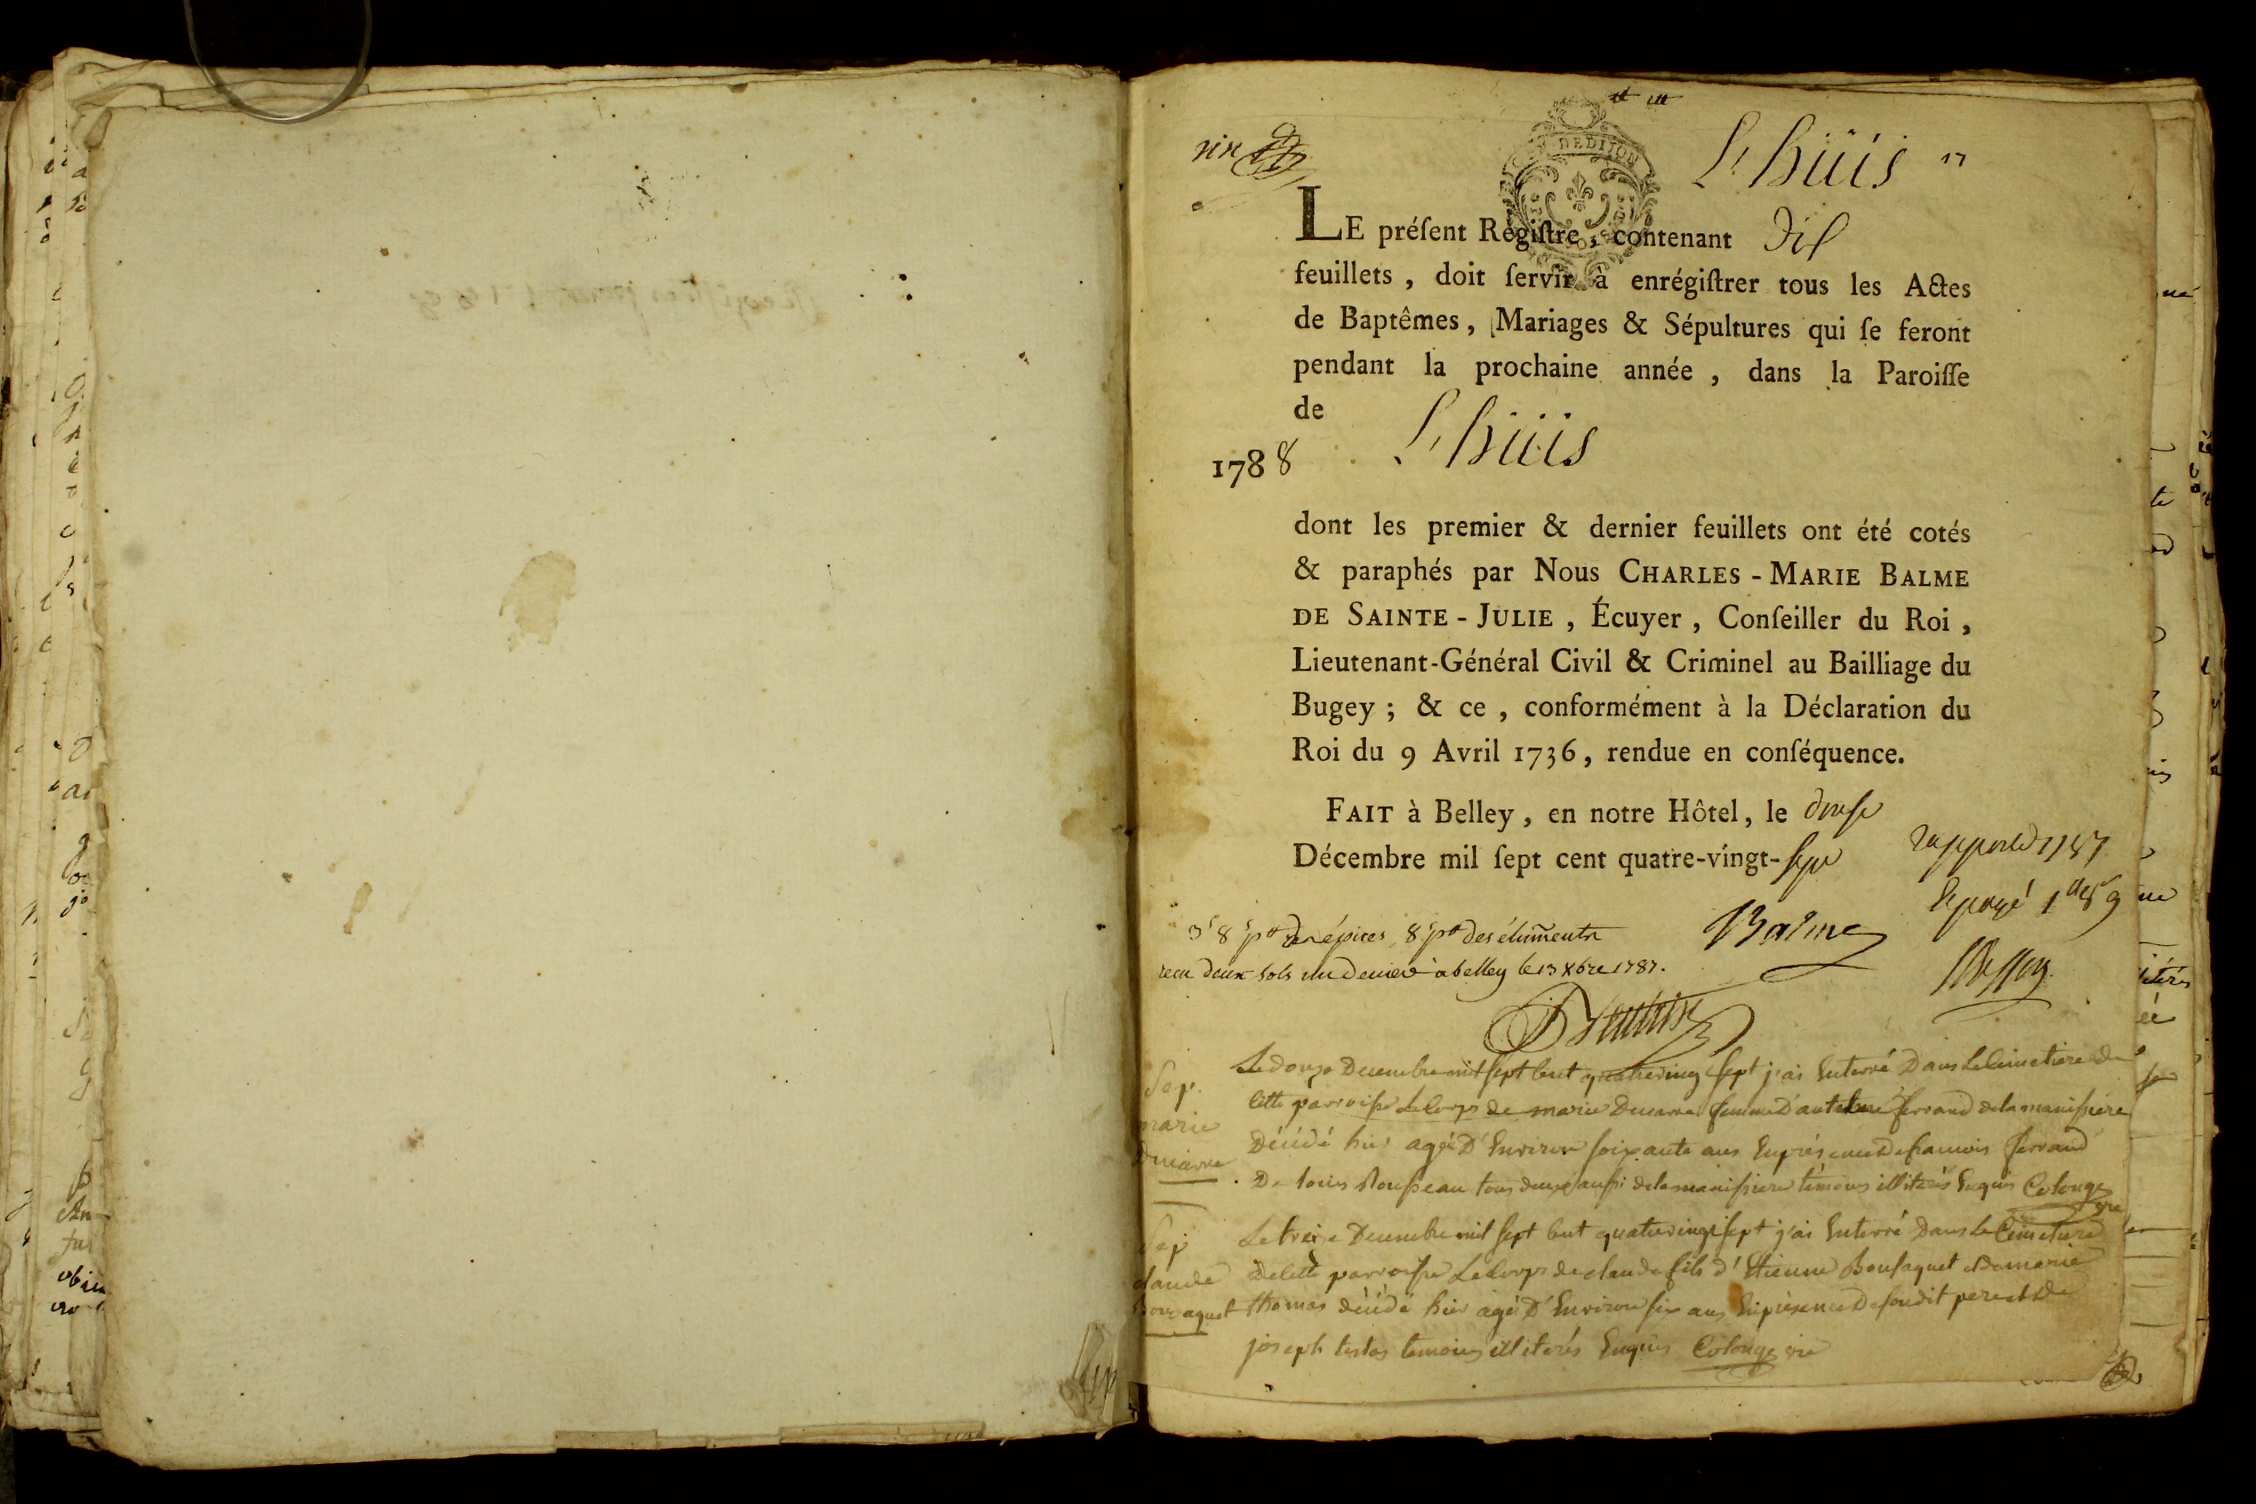 L'hüis
DE DIJON
LE préſent Régiſtre, contenant dix
feuillets, doit ſervir à enrégiſtrer tous les Actes
de Baptêmes, Mariages & Sépultures qui ſe feront
pendant la prochaine année, dans la Paroiſſe
de L'hüis
1788
dont les premier & dernier feuillets ont été cotés
& paraphés par Nous CHARLES-MARIE BALME
DE SAINTE-JULIE, Écuyer, Conſeiller du Roi,
Lieutenant-Général Civil & Criminel au Bailliage du
Bugey; & ce, conformément à la Déclaration du
Roi du 9 Avril 1736, rendue en conſéquence.
FAIT à Belley, en notre Hôtel, le douse
Décembre mil ſept cent quatre-vingt-sept
Balme
8 des épices, 8
recu deux sols un denier a belley le 13 Xbre 1787.
Sep.
marie
Ducarre
Le douze Decembre mil sept cent quatre ving sept j'ai Enterré Dans Le Cimetiere de
Cette parroisse Le Corps de marie Ducarre femme d'antelme ferrand de la manissiere
Décédé hier agée D'Environ soixante ans En présence de francois ferrand
De louis Rousseau tous deux aussi de la manissiere témoins illitérés Enquis Colonge
vre
Sep
claude
Bousaquet
Le treize Decembre mil sept cent quatre vingt sept j'ai Enterré Dans Le Cimetiere
de Cette parroisse Le Corps de claude fils d'Etienne Bousaquet et de marie
thomas décédé hier agé D'Environ six ans En présence De son dit pere et de
joseph testos temoins illiterés Enquis Colonge vre